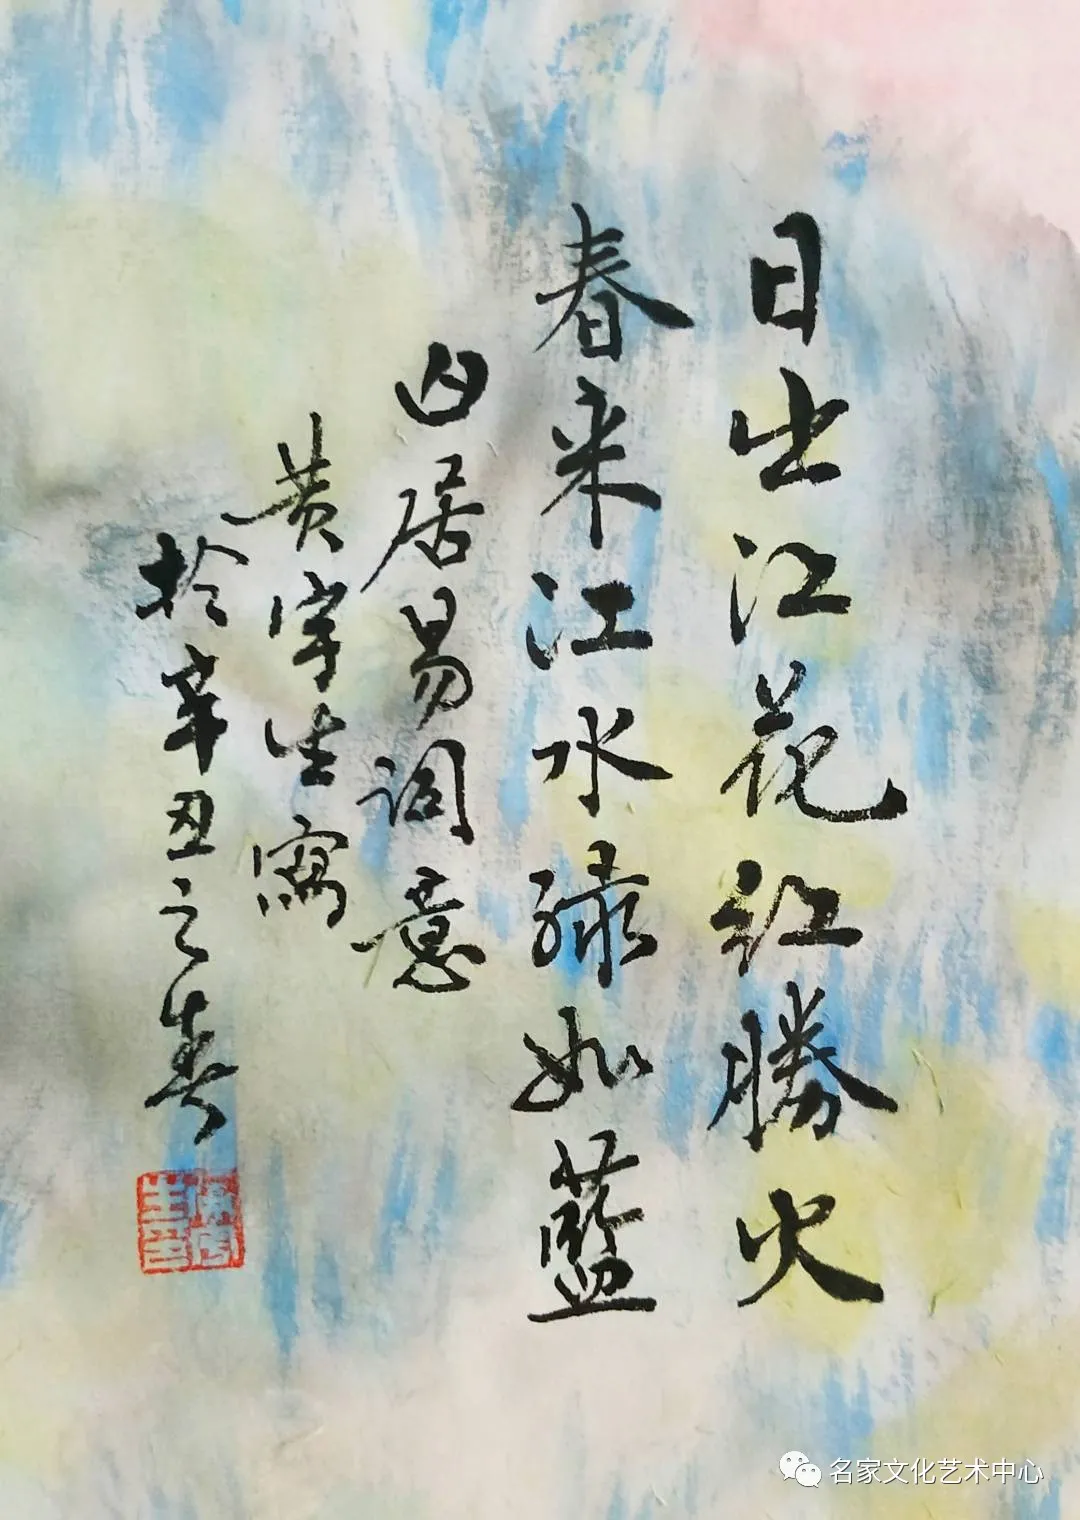 日出江花红勝火
春来江水绿如藍
白居易词意
黄宇生寫
於辛丑之春
名家文化艺术中心